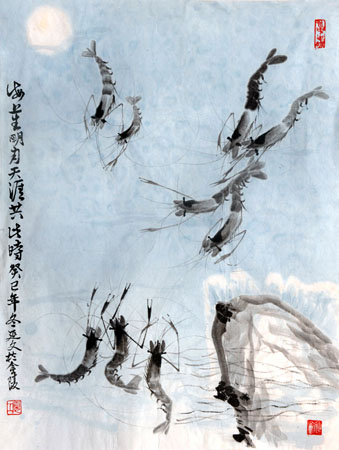 海上生明月天涯共此時癸巳年冬於金陵